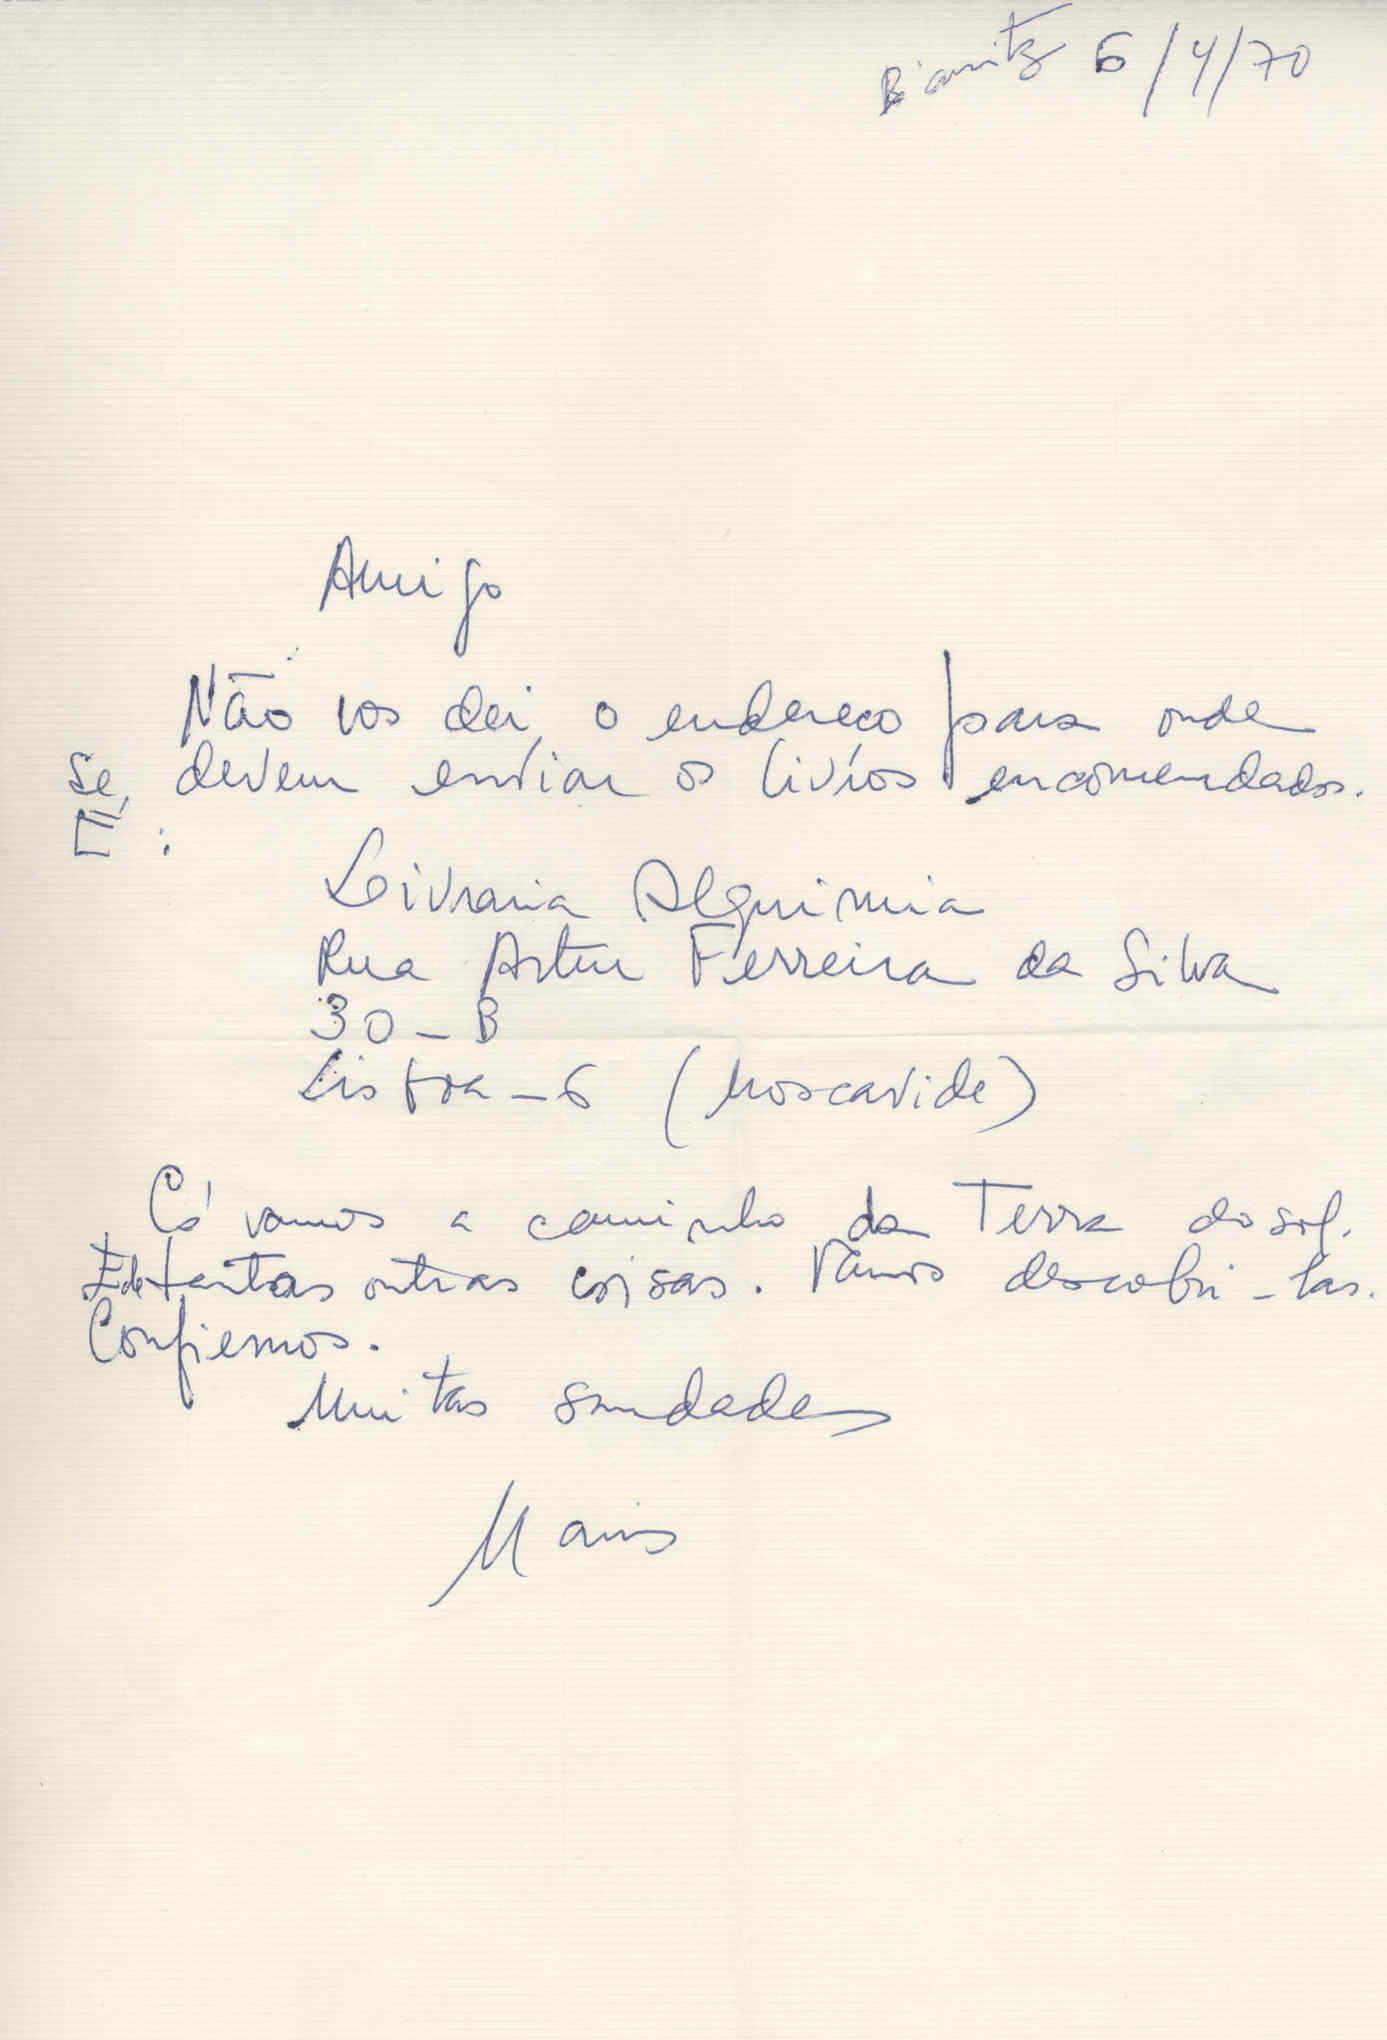 Biarritz 6/4/70
Amigo
Não vos dei o endereço para onde
se devem enviar os livros encomendados.
É :
Livraria Alquimia
Rua Artur Ferreira da Silva
30-B
Lisboa-6 (Moscavide)
Cá vamos a caminho da Terra do sol.
E de tantas outras coisas. Vamos descobri-las.
Confiemos.
Muitas saudades
Mário